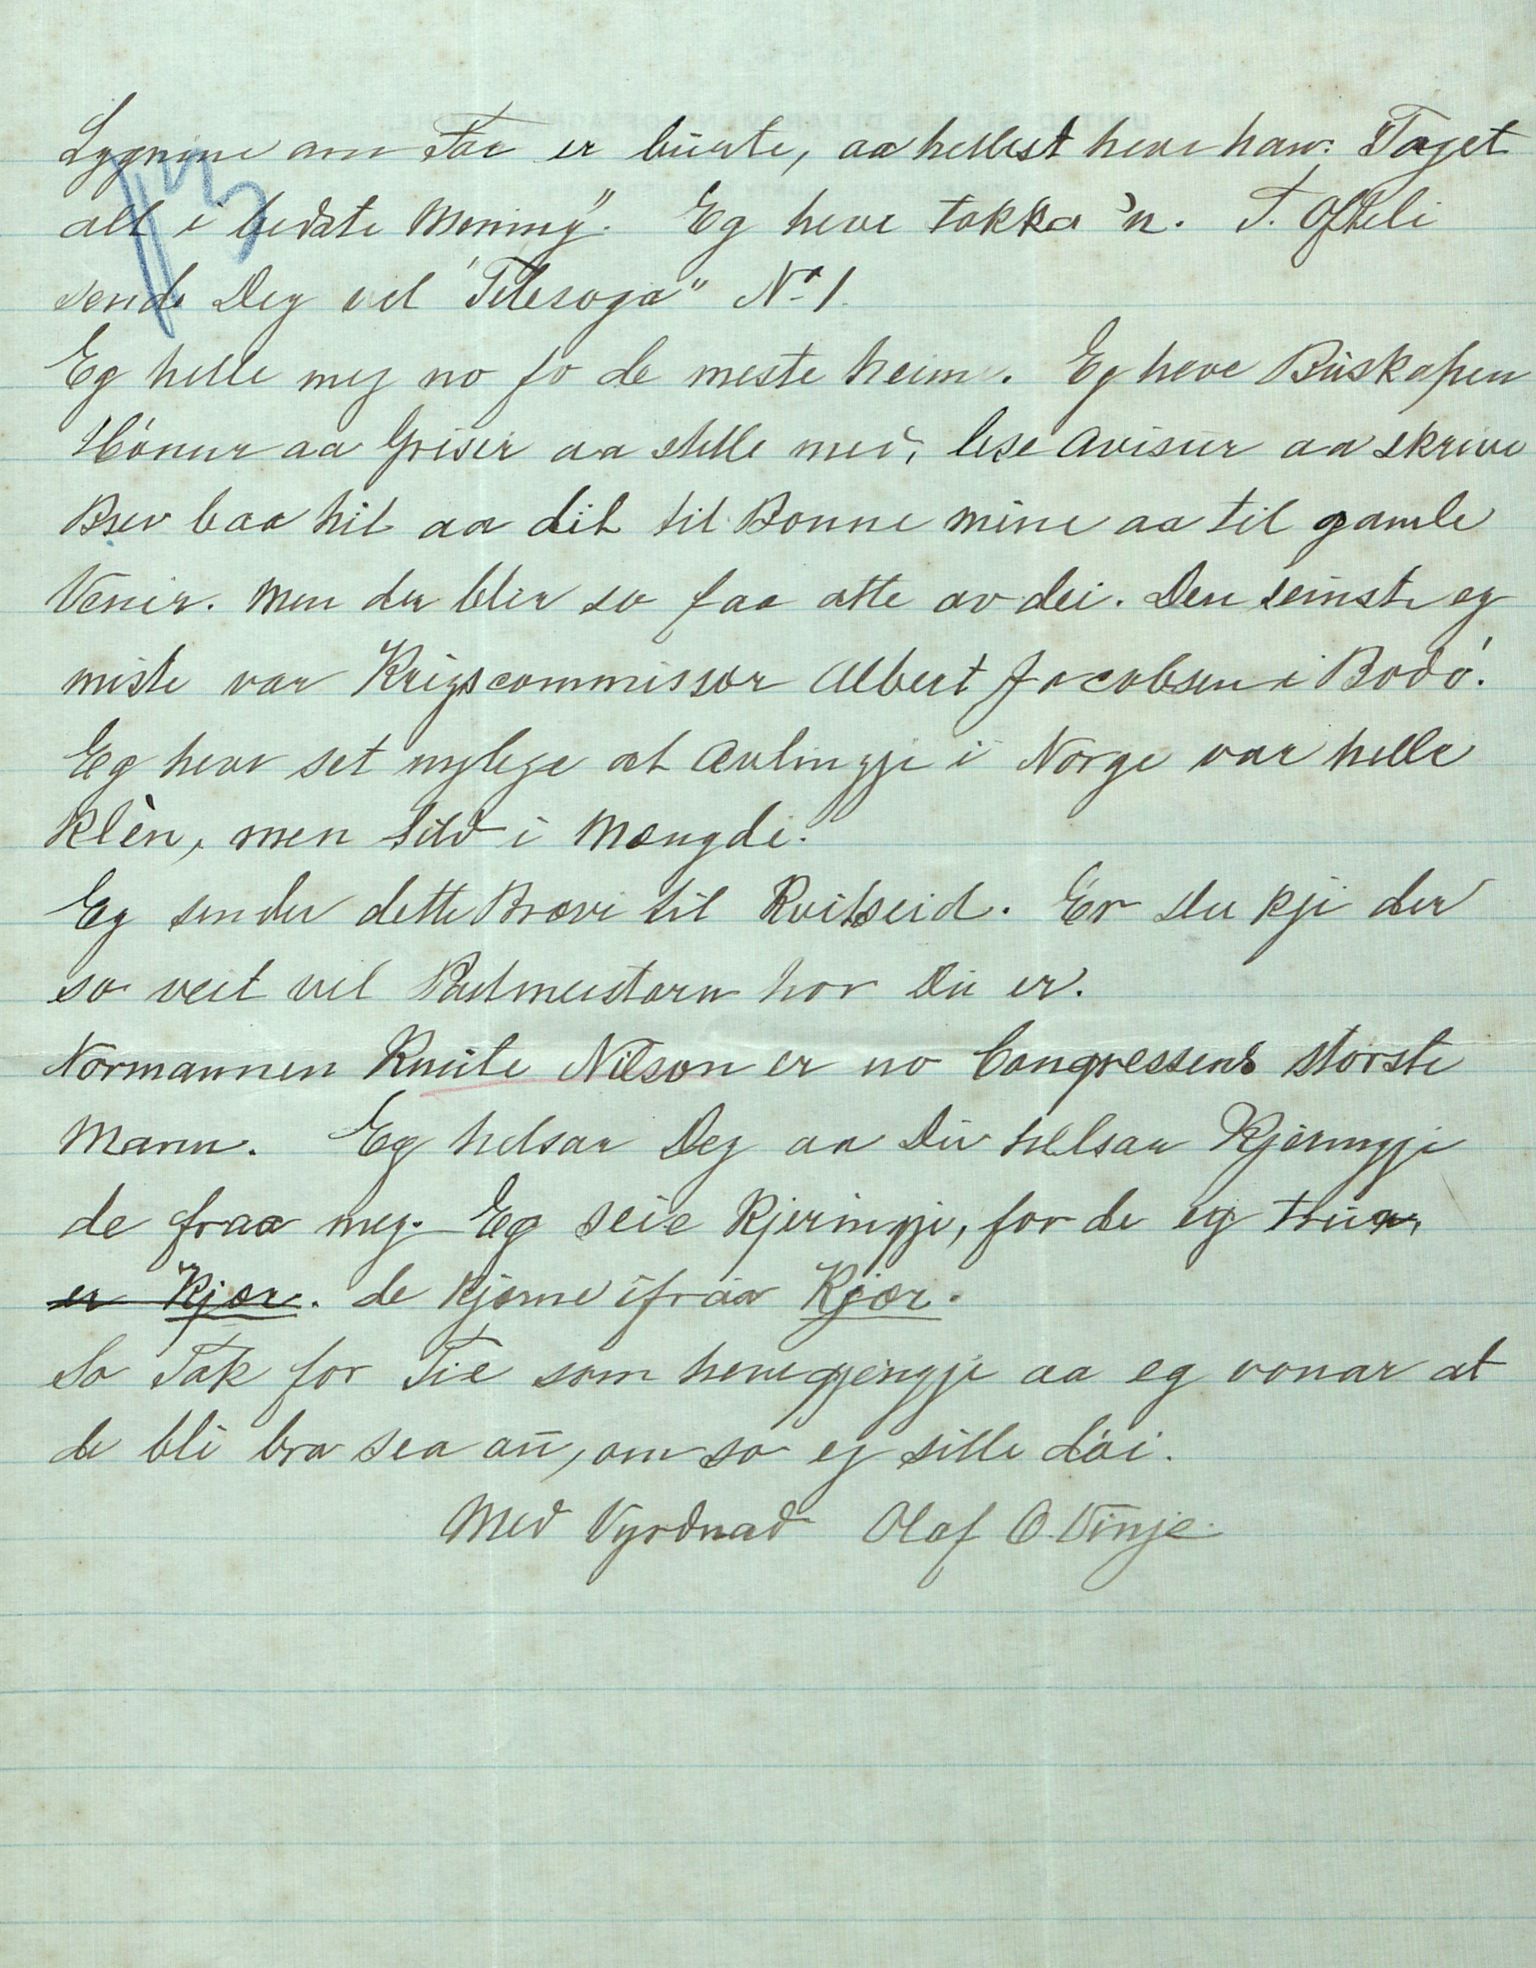 Lygnine om Far er burte, aa hellest heve han: "Taget
alt i bedste Mening". Eg heve takka 'n. T. Ofteli
sende Deg vel "Telesoga" No 1.
Eg helle meg no fo de meste heime. Eg heve Buskapen
Hönur aa Grisir aa stelle mei, lese Avisur aa skrive
Brev baa hit aa dit til Bonne mine aa til gamle
Venir. Men der blir so faa atte av dei. Den seinste eg
miste var Krigscommissær Albert Jacobsen i Bodö.
Eg heve set nylege at Avlingji i Norge var helle
klèn, men Sild i Mængdi.
Eg sender dette Brevi til Kvitseid. Er Du kji der
so veit vel Postmeistarn hor Du er.
Normannen Knute Nelson er no Congressens störste
Mann. Eg helsar Deg aa Du helsar Kjæringji
de fraa meg. Eg seie Kjeringji, for de eg truer,
er Kjær. de kjeme ifraa Kjær.
So Tak for Tie som heve gjengji aa eg vonar at
de bli bra sea au, om so eg sille döi.
Med Vyrdnad Olaf O. Vinje.